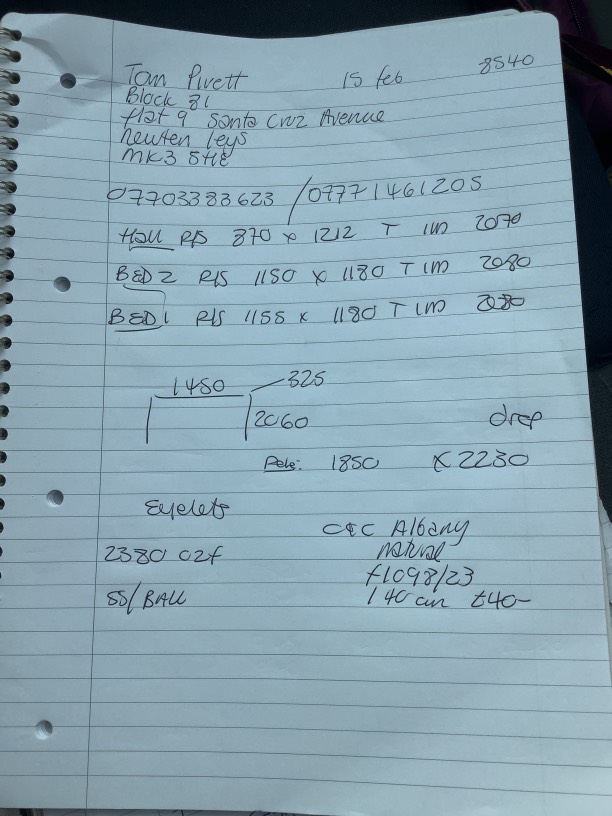 Tom Pivett 15 feb 8540
Block 81
flat 9 Santa Cruz Avenue
newten leys
MK3 5HE
07703383623 / 07771461205
Hall R/S 870 x 1212 T IM 2070
BED 2 R/S 1150 x 1180 T IM 2080
BED 1 R/S 1155 x 1180 T IM 2080
1450 325
2060 drop
Pole: 1850 x 2230
Eyelets
C&C Albany
2380 natural
f1098/23
SS/BALL 140 cm £40-